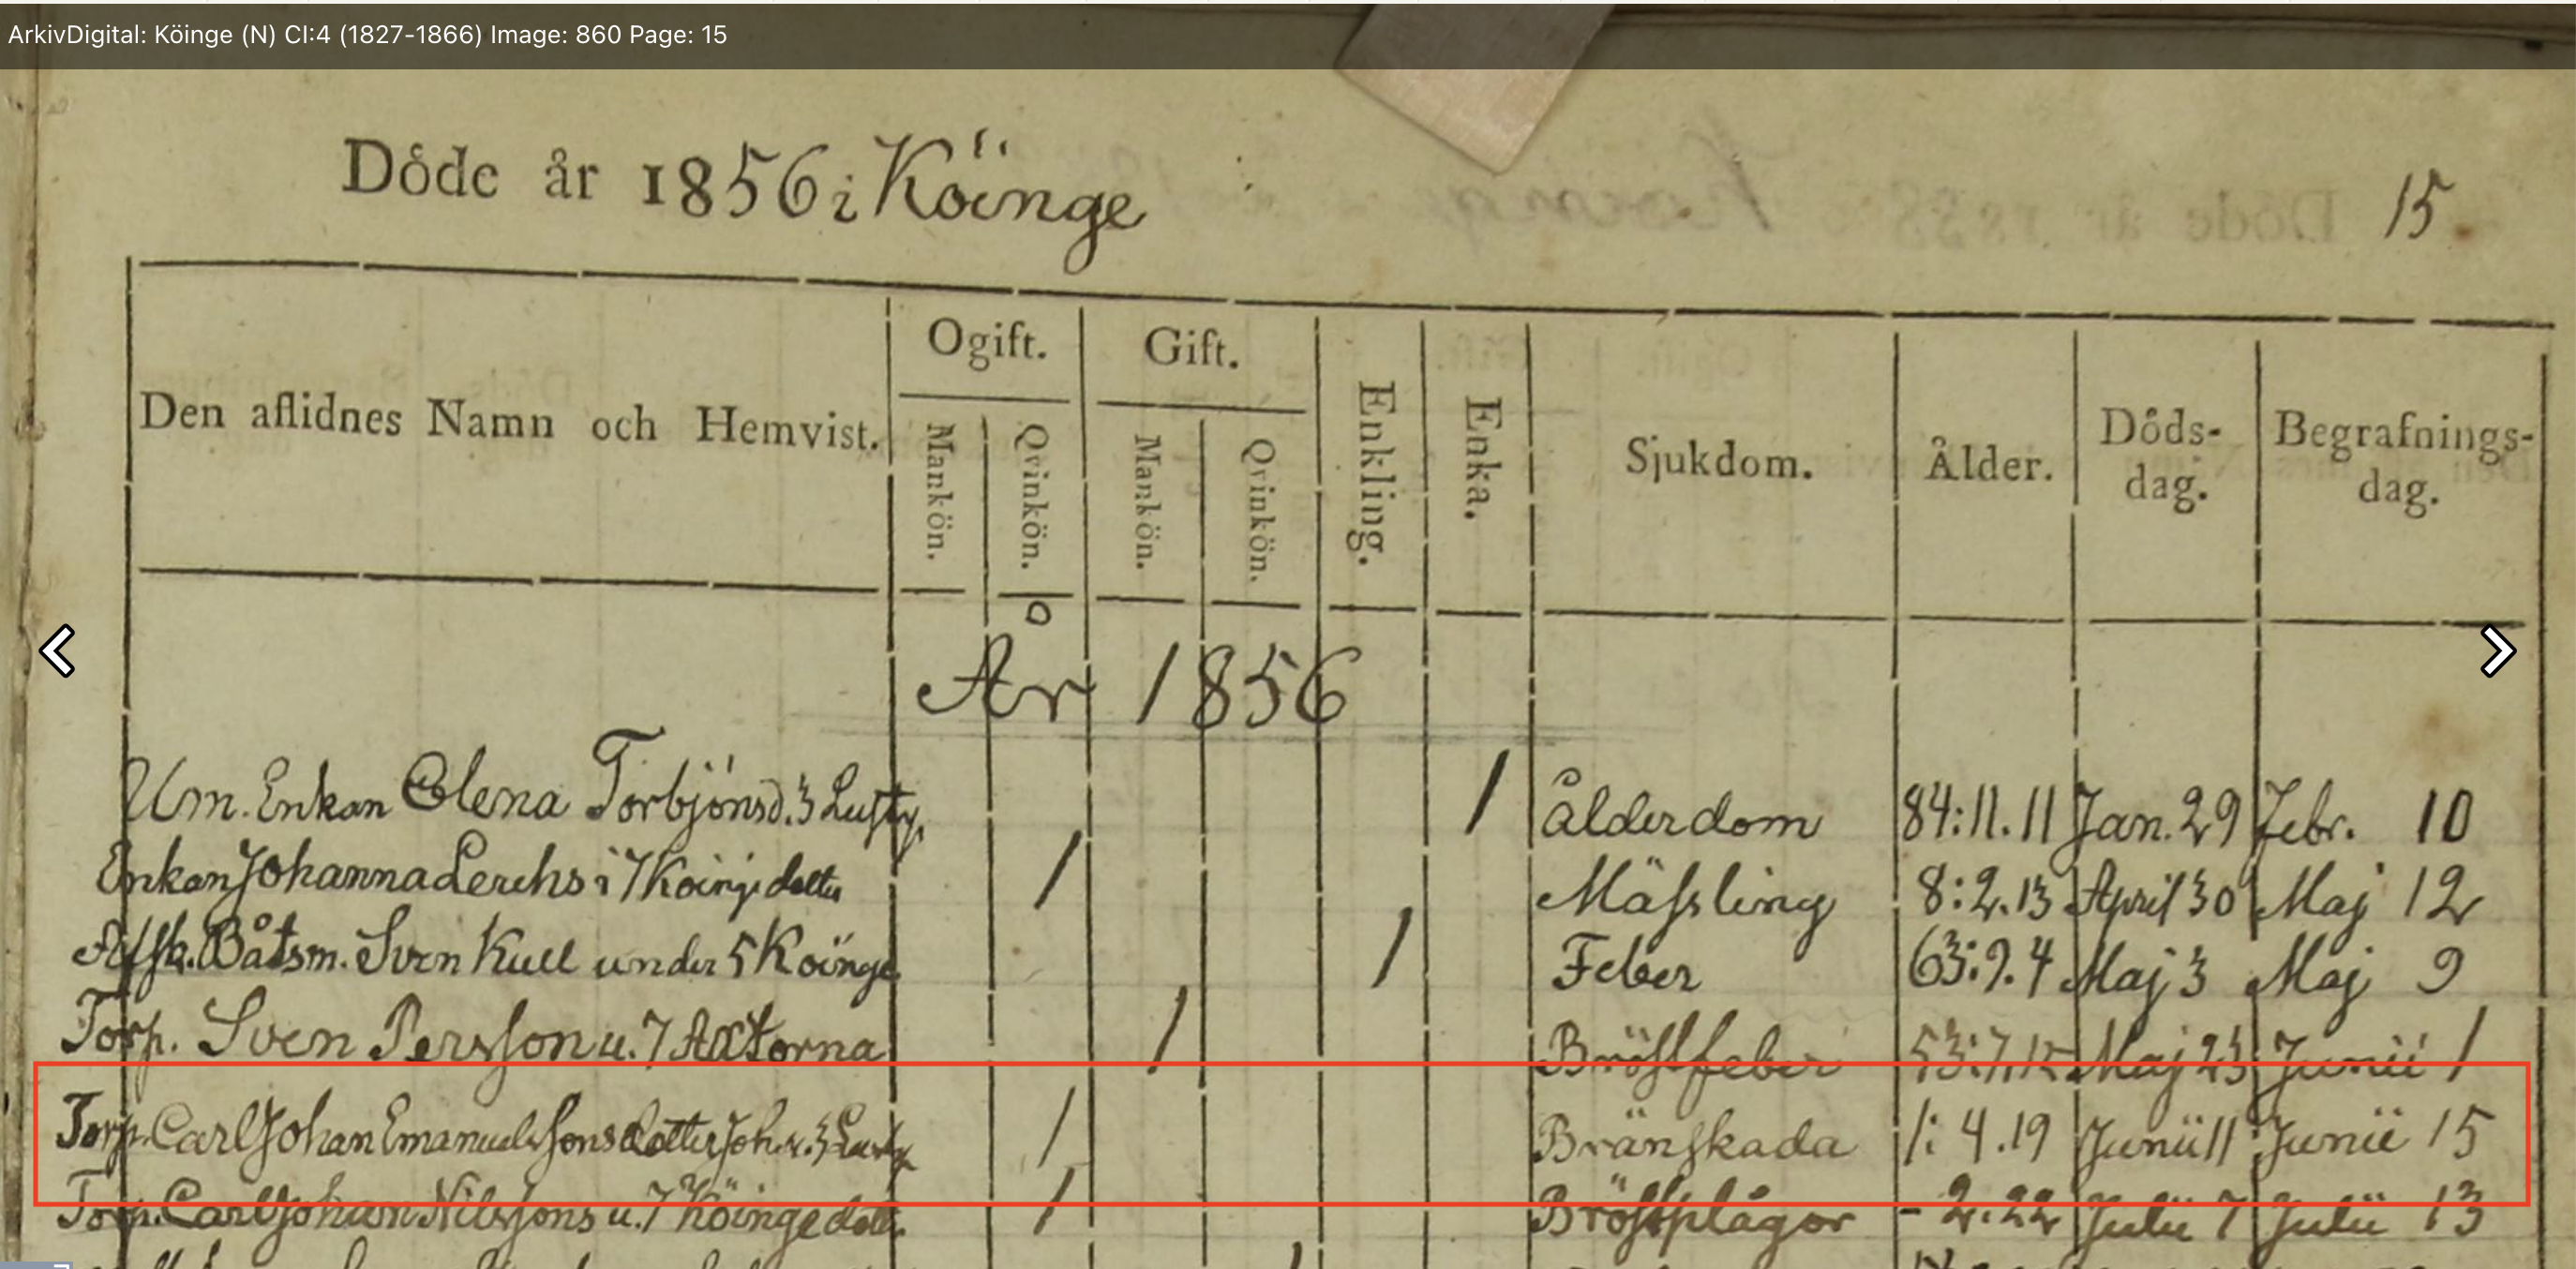 ArkivDigital: Köinge (N) CI:4 (1827-1866) Image: 860 Page: 15
Döde år 1856 i Köinge 15.
Ogift. Gift.
Den aflidnes Namn och Hemvist. Mankön. Qvinkön. Mankön. Qvinkön. Enkling. Enka. Sjukdom. Ålder. Döds-dag. Begrafnings-dag.
År 1856
Um. Enkan Elena Torbjönsd. 3 1 Ålderdom 84:11.11 Jan. 29 Febr. 10
Enkan Johanna Lerchs i 7 Köinge dotter 1 Mässling 8:2.13 April 30 Maj 12
Afsk. Båtsm. Sven Kull under 5 Köinge 1 Feber 63:9.4 Maj 3 Maj 9
Torp. Sven Persson u. 7 Axtorna 1 Bröstfeber 53:7.12 Maj 23 Junii 1
Torp. Carl Johan Emanuelssons dotter Joh. u. 3 1 Bränskada 1:4.19 Junii 11 Junii 15
Torp. Carl Johan Nilssons u. 7 Köinge dott. 1 Bröstplågor - 2.22 Julii 7 Julii 13